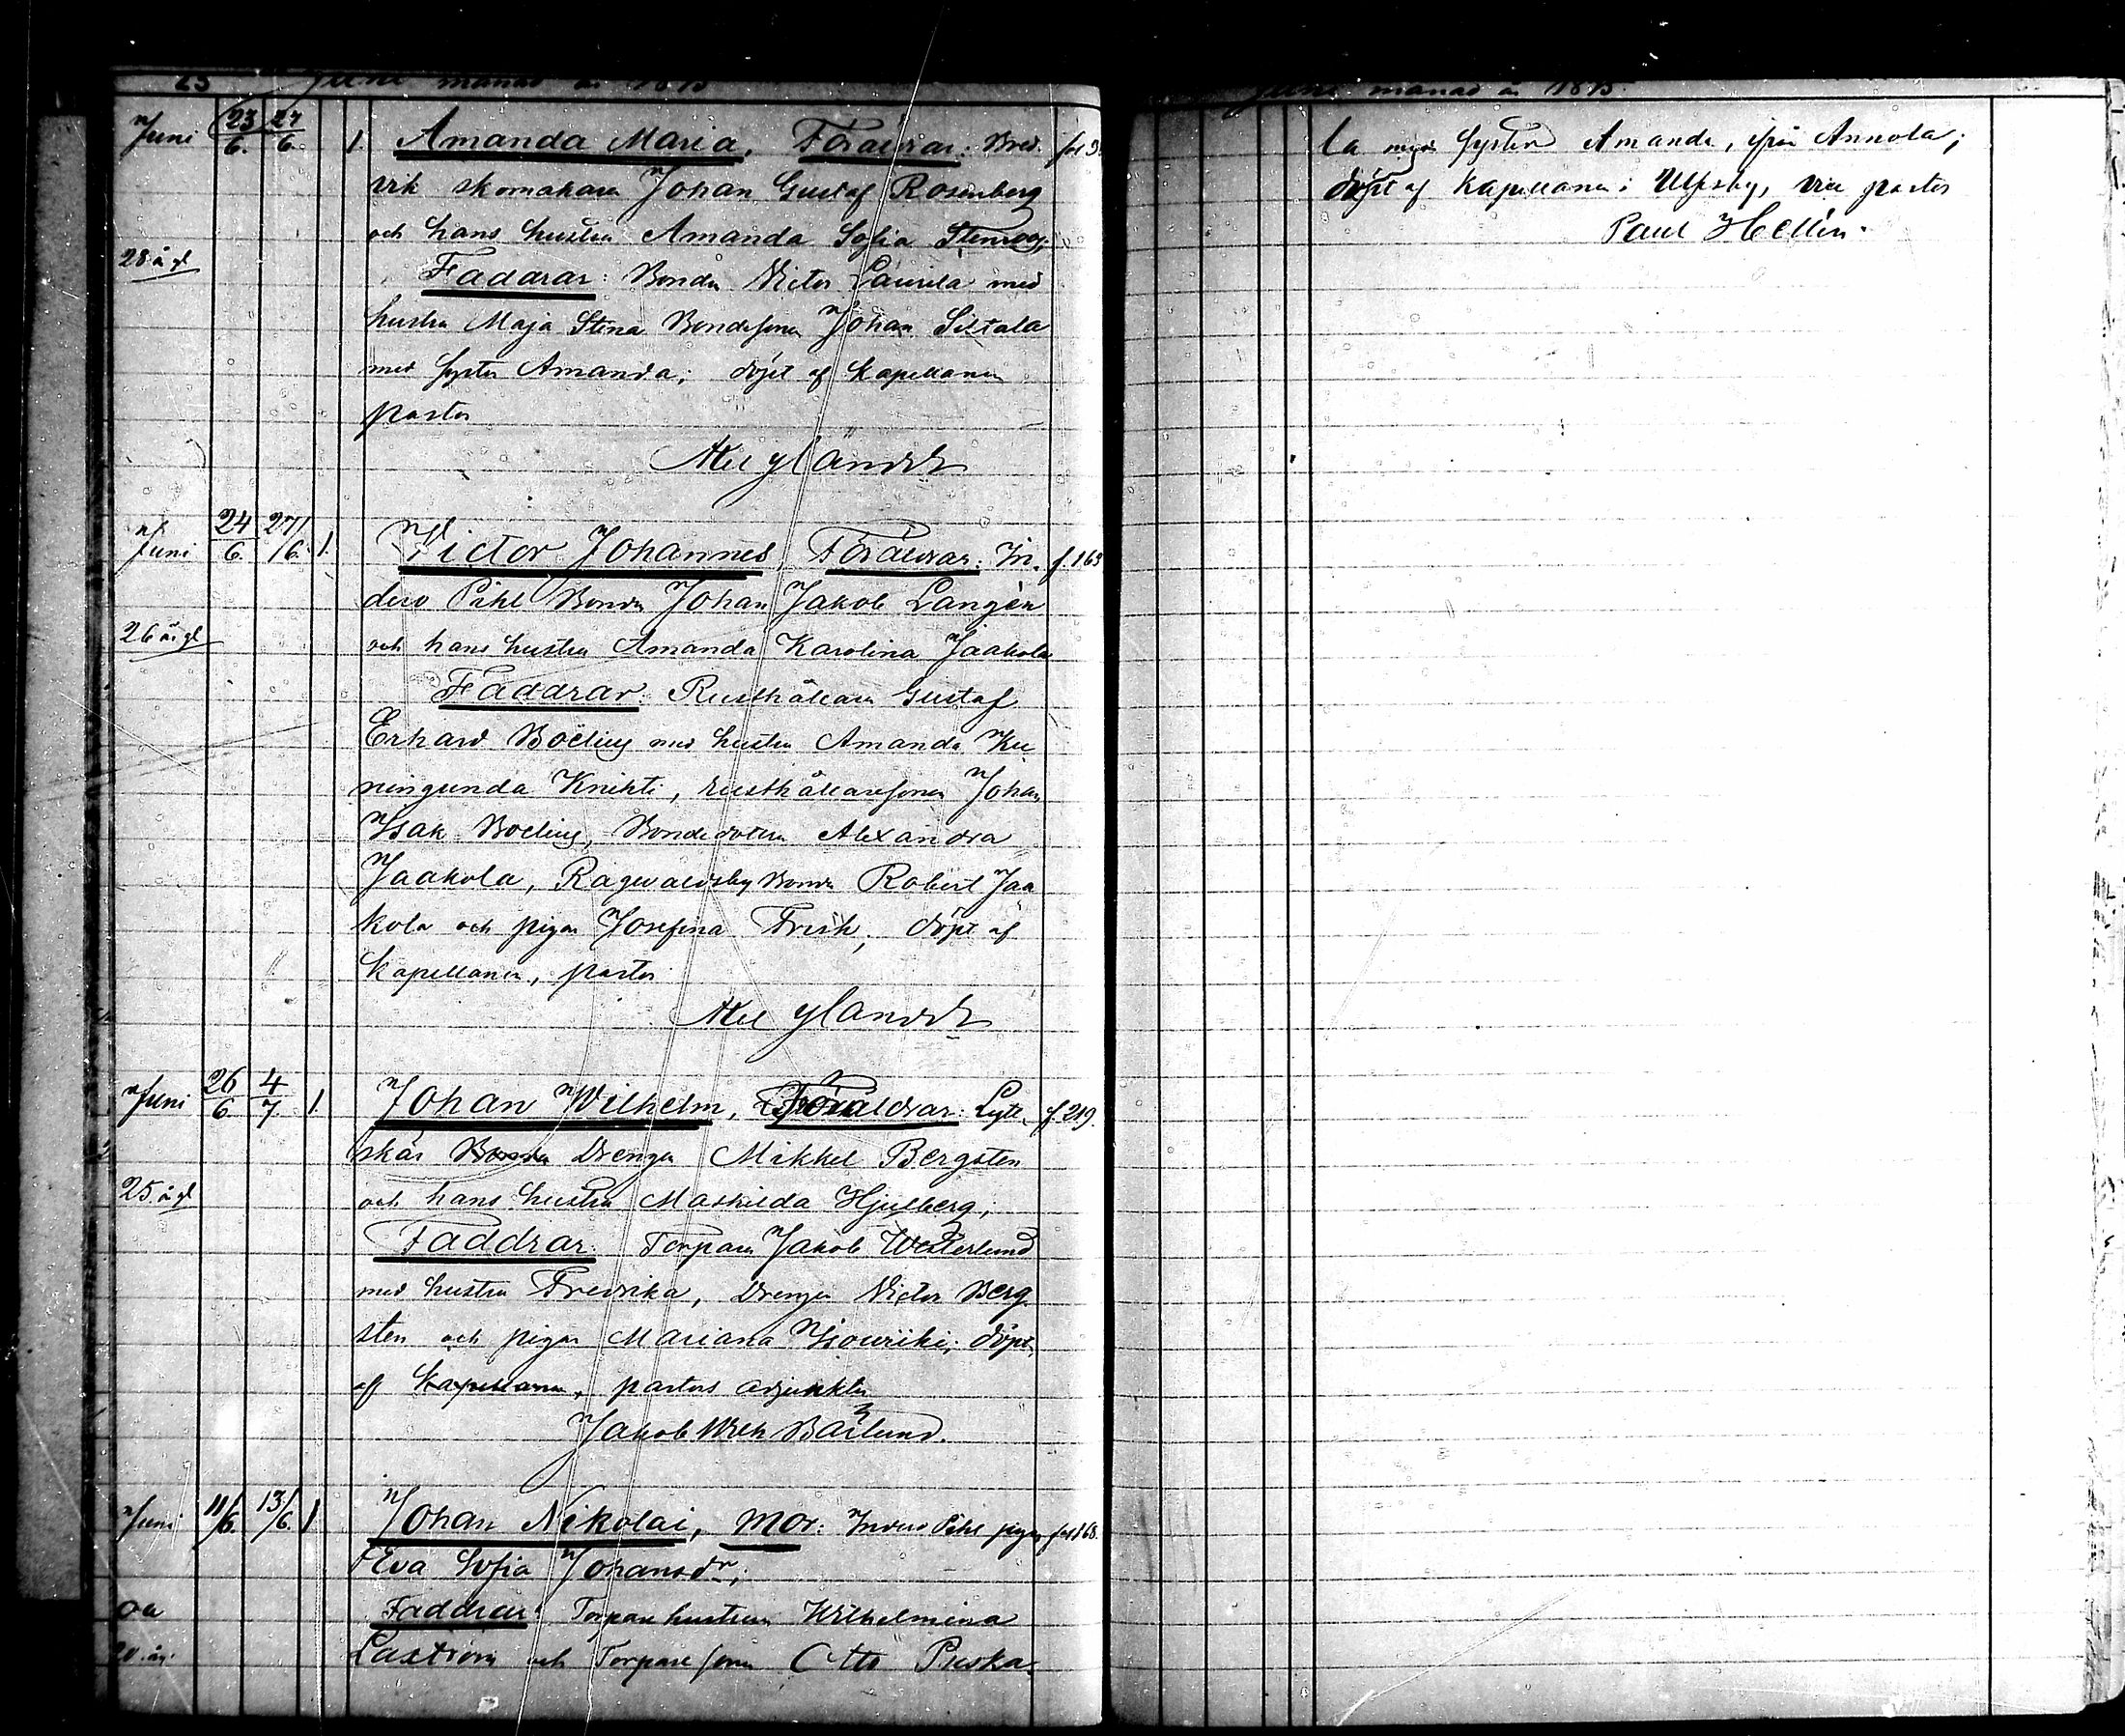 23 Juni månad år 1875
Juni 23/6. 27/6. 1. Amanda Maria, Föräldrar: Bred-
vik skomakaren Johan Gustaf Rosenberg
och hans hustru Amanda Sofia Stenroos;
28 år gl
Faddrar: Bonden Victor Laurila med
hustru Maja Stina Bondesonen Johan Siltala
med syster Amanda; döpt af Kapellanen
pastor
Axel Ylander
Juni 24/6. 27/6. 1. Victor Johannes, Föräldrar: In- f. 163
derö Pihl Bonden Johan Jakob Langén
26 år gl och hans hustru Amanda Karolina Jaakola
Faddrar: Rusthållaren Gustaf
Erhard Boëlius med hustru Amanda Ku
ningunda Knihti, rusthållaresonen Johan
Isak Boelius, Bondedottren Alexandra
Jaakola, Ragvaldsby Bonden Robert Jaa
kola och pigan Josefina Frisk; döpt af
Kapellanen, pastor
Axel Ylander
Juni 26/6. 4/7. 1. Johan Wilhelm, Föräldrar: Lytt- f. 219.
skär Bonden Drengen Mikkel Bergsten
25 år gl och hans hustru Mathilda Hjulberg;
Faddrar: Torparen Jakob Westerlund
med hustru Fredrika, Drengen Victor Berg
sten och pigan Mariana Isouriki; döpt
af Kapellanen, pastors adjunkten
Jakob Wilh Bärlund.
Juni 11/6. 13/6. 1 Johan Nikolai, Mor: Inderö Pihl pigan fol 168.
Eva Sofia Johansdr;
oä Faddrar: Torpare hustrun Wilhelmina
20 år. Laxtröm och Torpare sonen Otto Puska-
Juni månad år 1875.
la med syster Amanda, från Annola;
döpt af Kapellanen i Ulfsby, vice pastor
Paul Hellén.